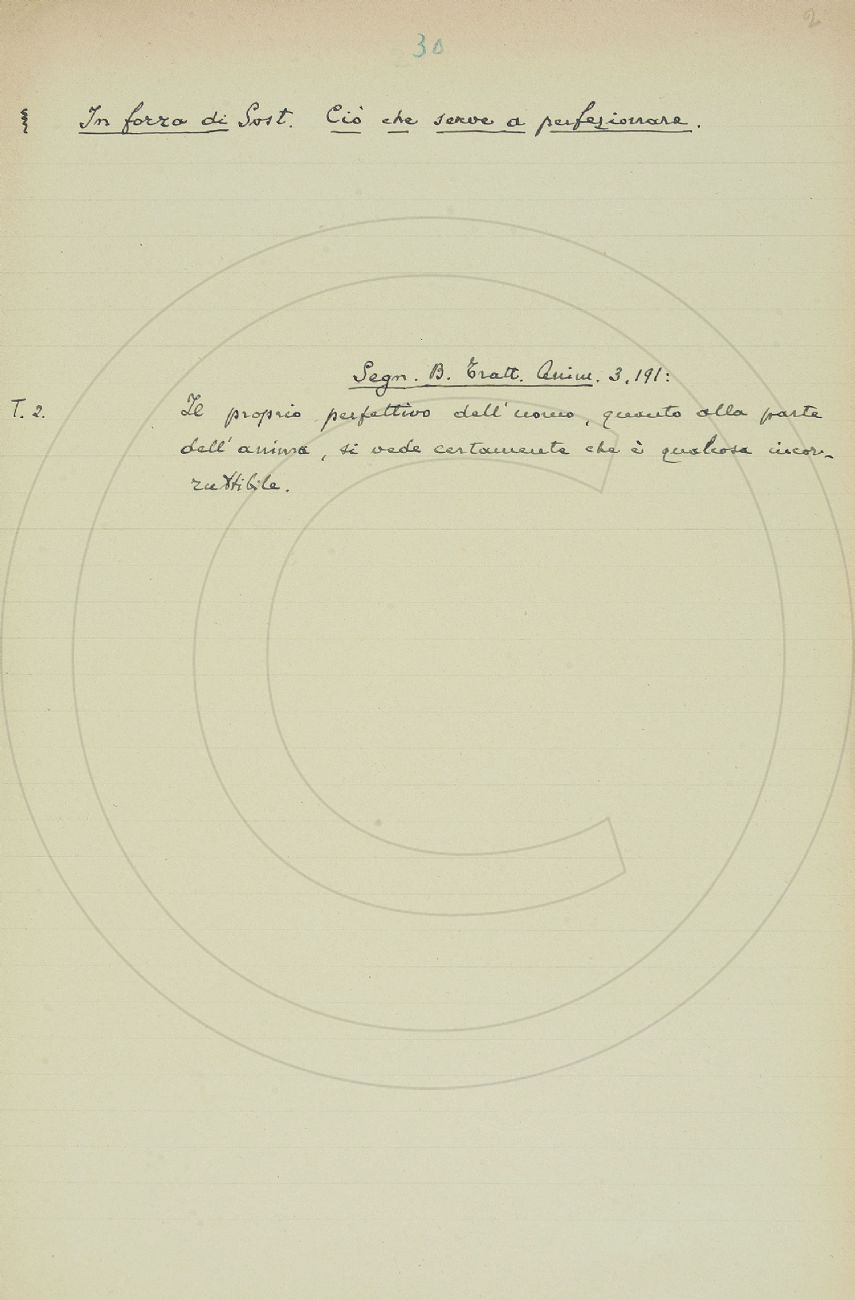 2
30
§ In forza di Sost. Ciò che serve a perfezionare.
Segn. B. Tratt. Anim. 3, 191:
T. 2. Il proprio perfettivo dell'uomo, quanto alla parte
dell'anima, si vede certamente che è qualcosa incor-
ruttibile.